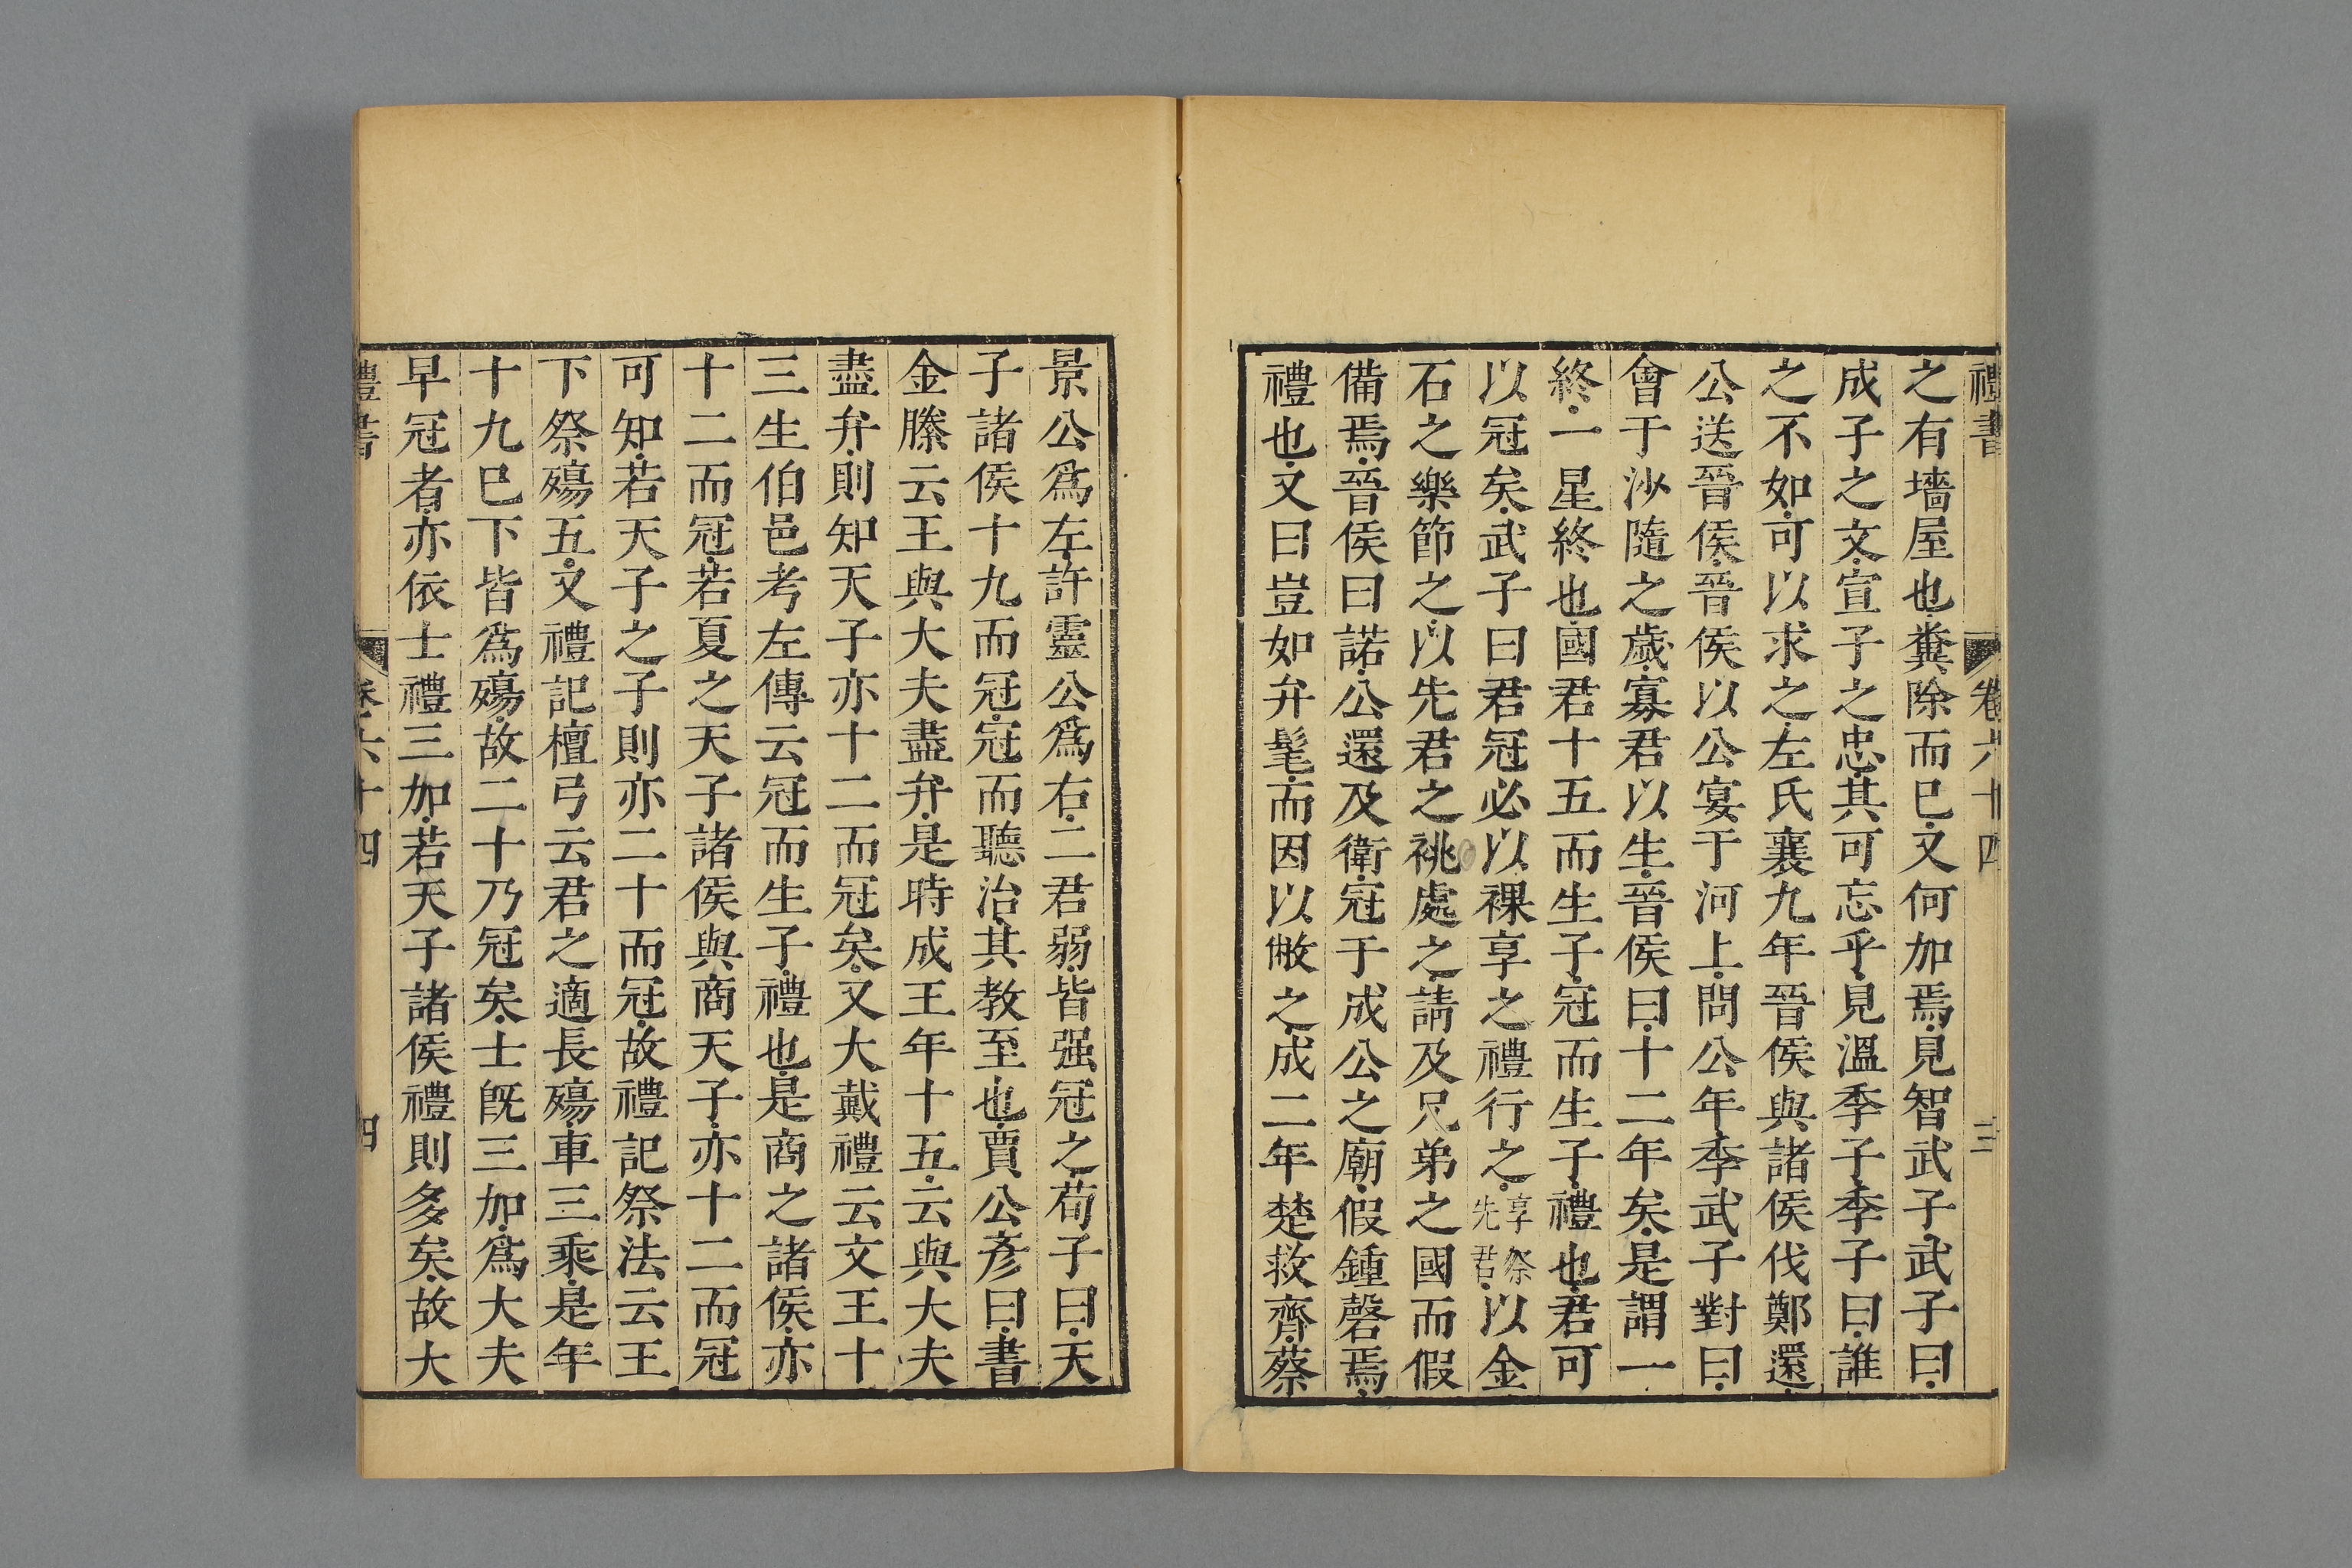 禮書 卷六十四 三
之有墻屋也糞除而已文何加焉見智武子武子曰
成子之文宣子之忠其可忘乎見溫季子季子曰誰
之不如可以求之左氏襄九年晉侯與諸侯伐鄭還
公送晉侯晉侯以公宴于河上問公年季武子對曰
會于沙隨之歲寡君以生晉侯曰十二年矣是謂一
終一星終也國君十五而生子冠而生子禮也君可
以冠矣武子曰君冠必以祼享之禮行之享祭先君以金
石之樂節之以先君之祧處之請及兄弟之國而假
備焉晉侯曰諾公還及衛冠于成公之廟假鍾磬焉
禮也文曰豈如弁髦而因以敝之成二年楚救齊蔡
景公爲左許靈公爲右二君弱皆强冠之荀子曰天
子諸侯十九而冠冠而聽治其教至也賈公彥曰書
金縢云王與大夫盡弁是時成王年十五云與大夫
盡弁則知天子亦十二而冠矣又大戴禮云文王十
三生伯邑考左傳云冠而生子禮也是商之諸侯亦
十二而冠若夏之天子諸侯與商天子亦十二而冠
可知若天子之子則亦二十而冠故禮記祭法云王
下祭殤五文禮記檀弓云君之適長殤車三乘是年
十九已下皆爲殤故二十乃冠矣士旣三加爲大夫
早冠者亦依士禮三加若天子諸侯禮則多矣故大
禮書 卷六十四 四